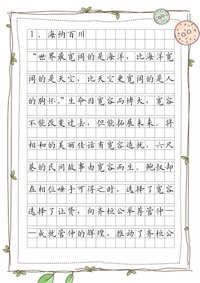 1.海纳百川
“世界最宽阔的是海洋，比海洋宽
阔的是天空，比天空更宽阔的是人
的胸怀。”生命因宽容而博大，宽容
不能改变过去，但能拓展未来。将
相和的美丽佳话有宽容连犹，六尺
巷的民间故事由宽容而生。鲍叔却
在相位唾手可得之时，选择了宽容
选择了让贤，向齐桓公举荐管仲—
—成就管仲的辉煌，推动了齐桓公